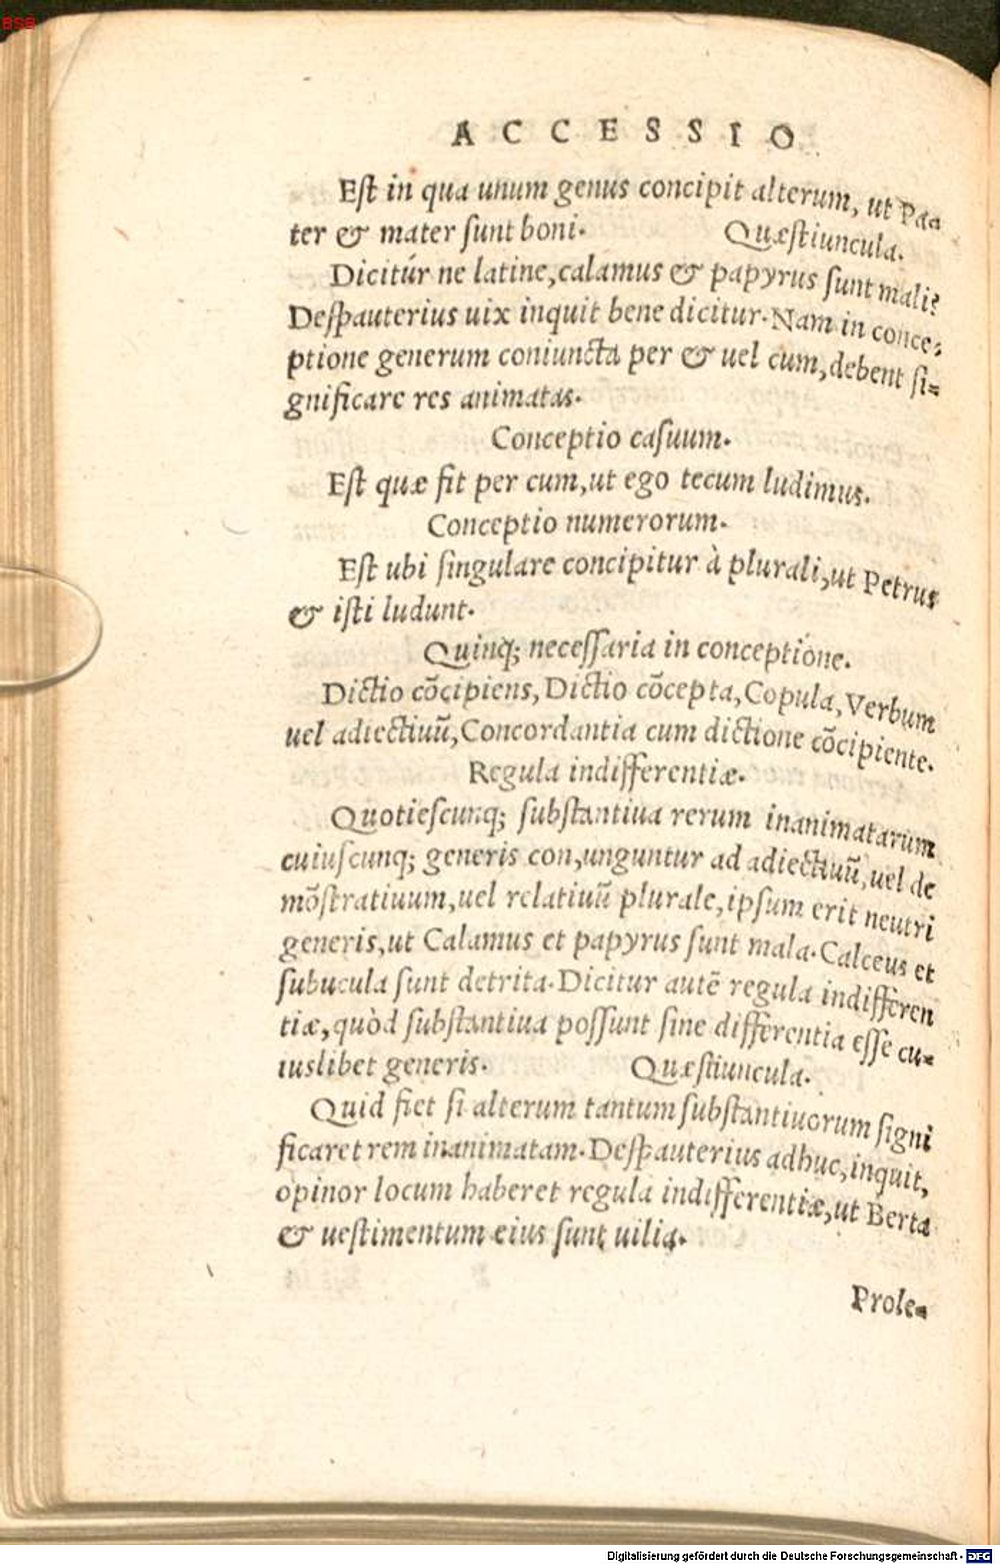 BSB
ACCESSIO
Eſt in qua unum genus concipit alterum, ut Pa=
ter & mater ſunt boni. Quæſtiuncula.
Dicitúr ne latine, calamus & papyrus ſunt mali?
Deſpauterius uix inquit bene dicitur. Nam in conce=
ptione generum coniuncta per & uel cum, debent ſi=
gnificare res animatas.
Conceptio caſuum.
Eſt quæ fit per cum, ut ego tecum ludimus.
Conceptio numerorum.
Eſt ubi ſingulare concipitur à plurali, ut Petrus
& iſti ludunt.
Quinq; neceſſaria in conceptione.
Dictio cõcipiens, Dictio cõcepta, Copula, Verbum
uel adiectiuũ, Concordantia cum dictione cõcipiente.
Regula indifferentiæ.
Quotieſcunq; ſubſtantiua rerum inanimatarum
cuiuſcunq; generis coniunguntur ad adiectiuũ, uel de
mõſtratiuum, uel relatiuũ plurale, ipſum erit neutri
generis, ut Calamus et papyrus ſunt mala. Calceus et
ſubucula ſunt detrita. Dicitur autẽ regula indifferen
tiæ, quòd ſubſtantiua poſſunt ſine differentia eſſe cu=
iuslibet generis. Quæſtiuncula.
Quid fiet ſi alterum tantum ſubſtantiuorum ſigni
ficaret rem inanimatam. Deſpauterius adhuc, inquit,
opinor locum haberet regula indifferentiæ, ut Berta
& ueſtimentum eius ſunt uilia.
Prole=
Digitalisierung gefördert durch die Deutsche Forschungsgemeinschaft - DFG